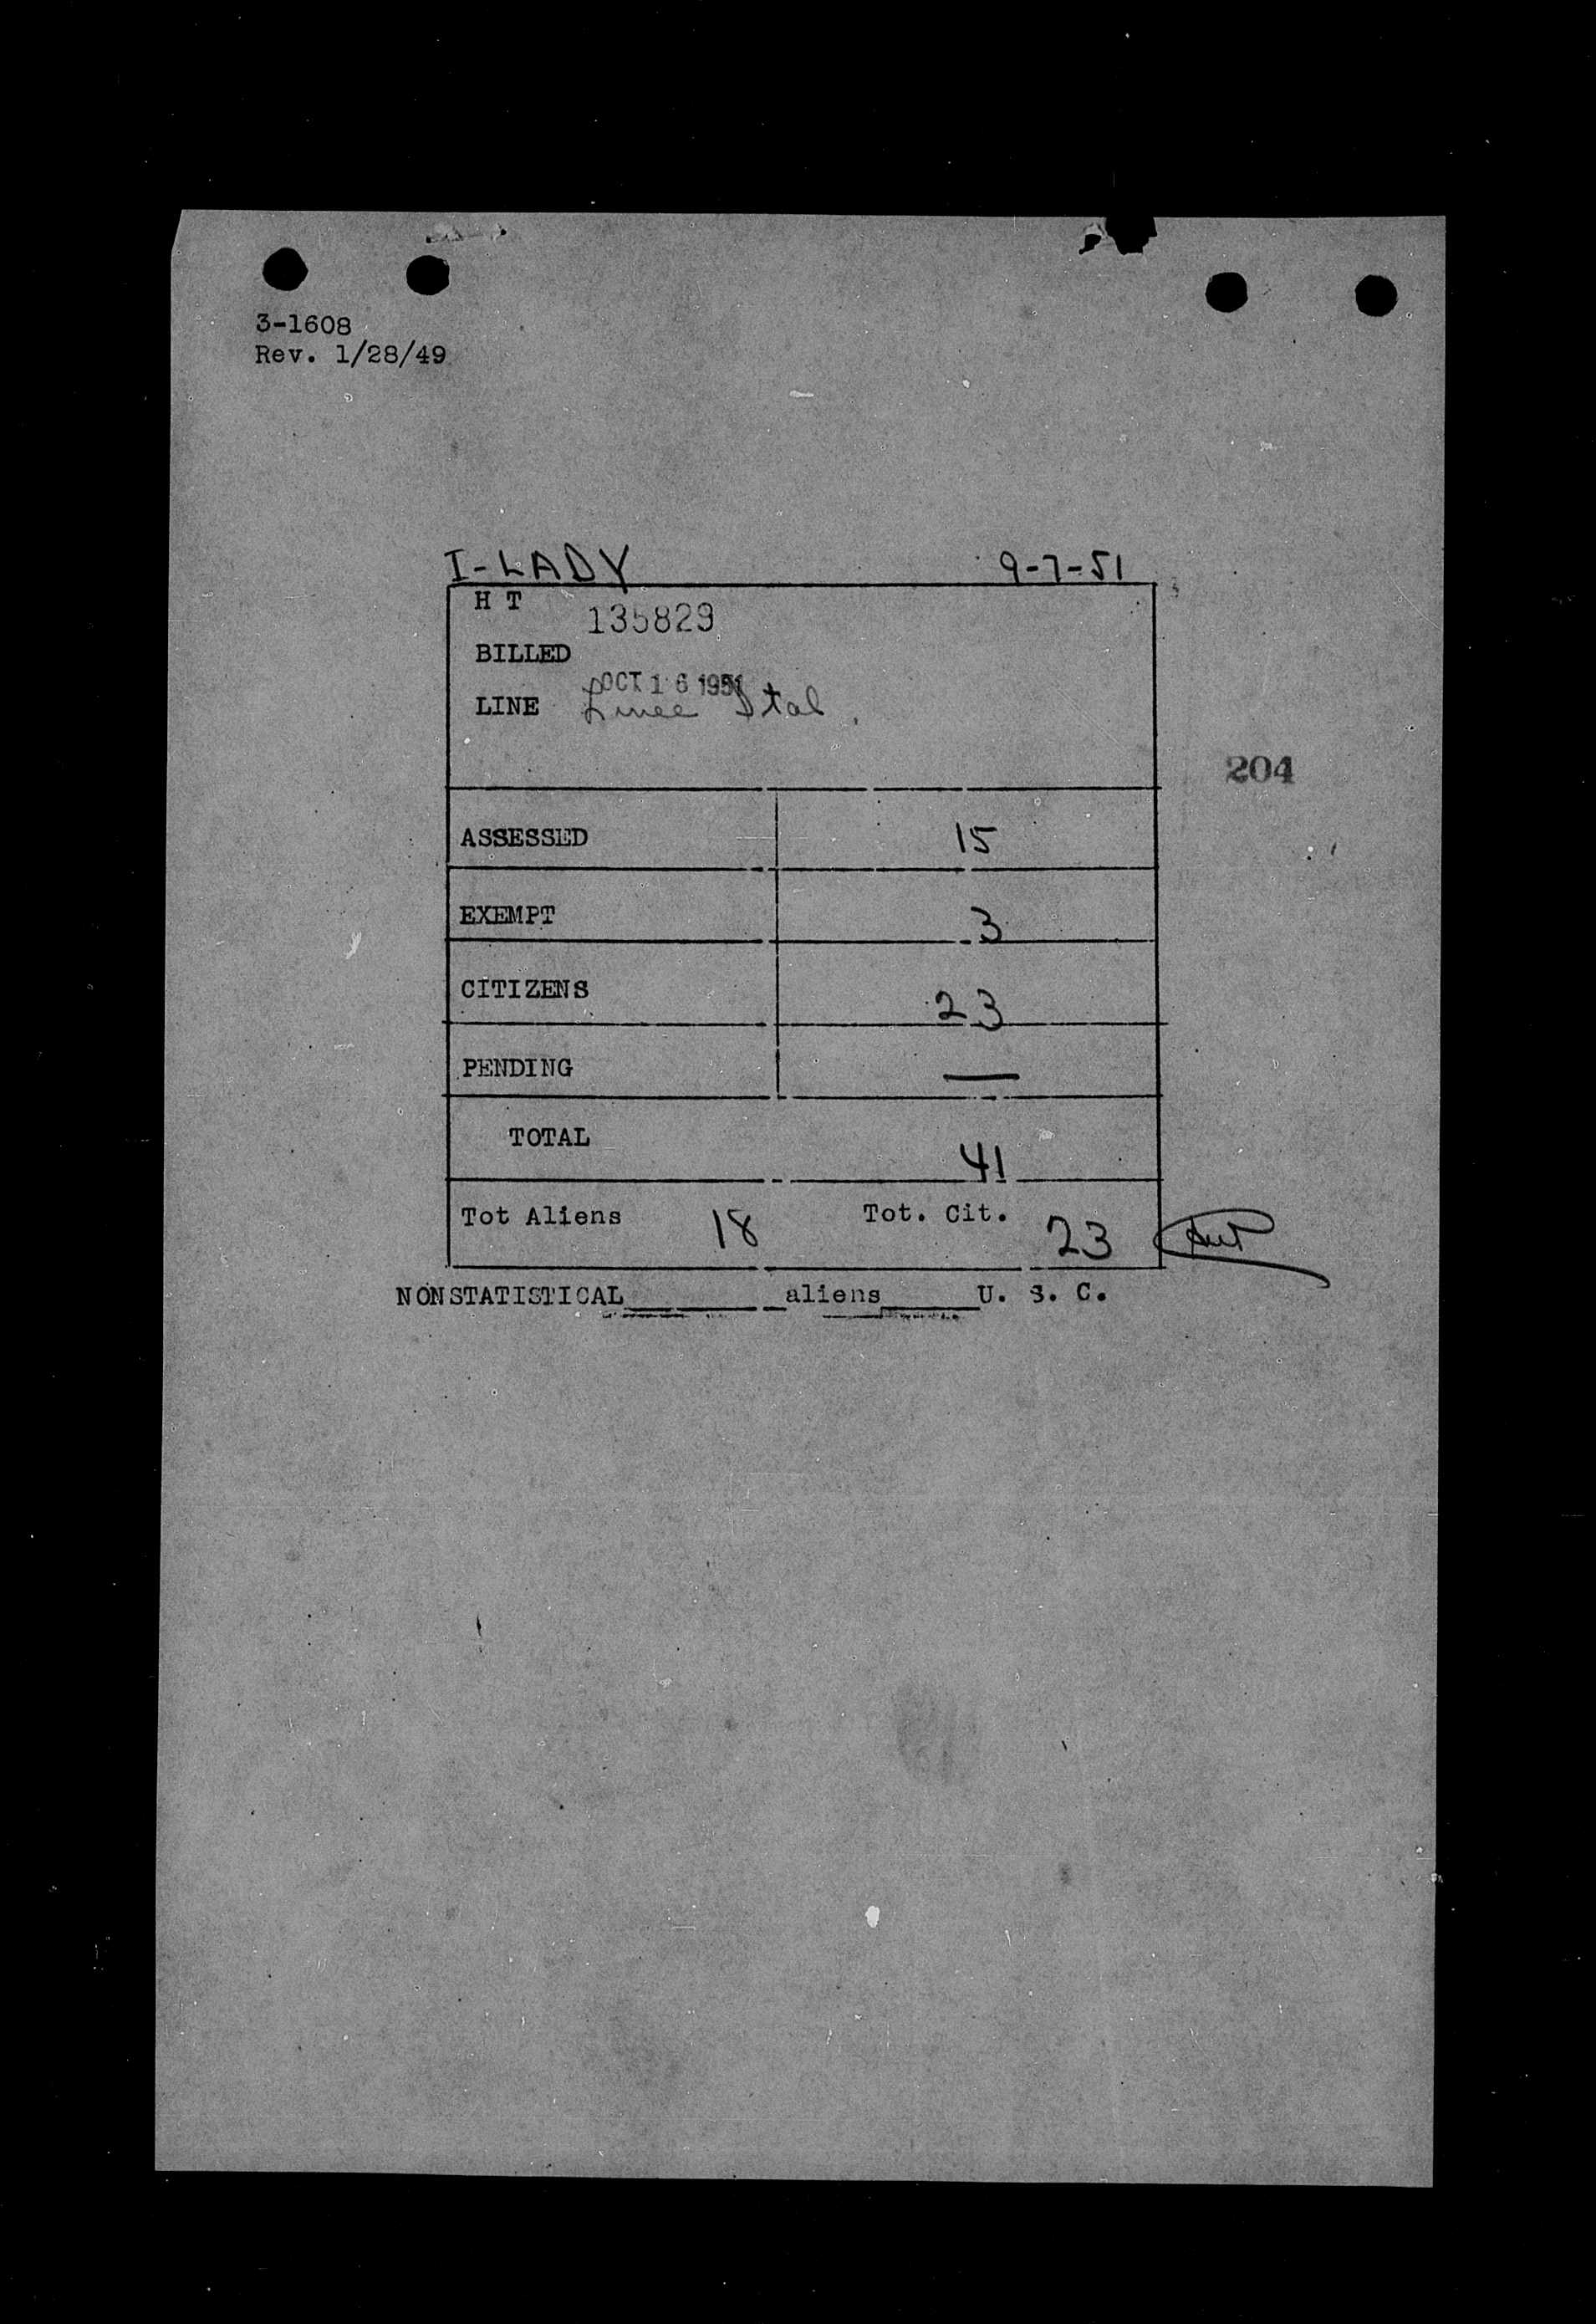 3-1608
Rev. 1/28/49
I-LADY 9-7-51
H T 135829
BILLED
OCT 16 1951
LINE Linee Ital
204
ASSESSED 15
EXEMPT 3
CITIZENS 23
PENDING —
TOTAL 41
Tot Aliens 18 Tot. Cit. 23
NONSTATISTICAL______aliens______U. S. C.